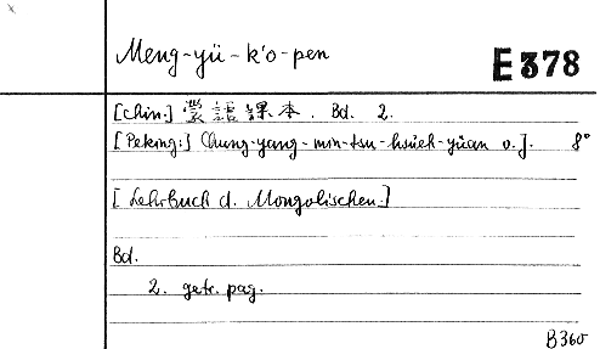 Meng-yü-k'o-pen
E 378
[chin.] 蒙語課本. Bd. 2.
[Peking:] Chung-yang-min-tsu-hsüeh-yüan o.J. 8°
[Lehrbuch d. Mongolischen.]
Bd.
2. getr. pag.
B360